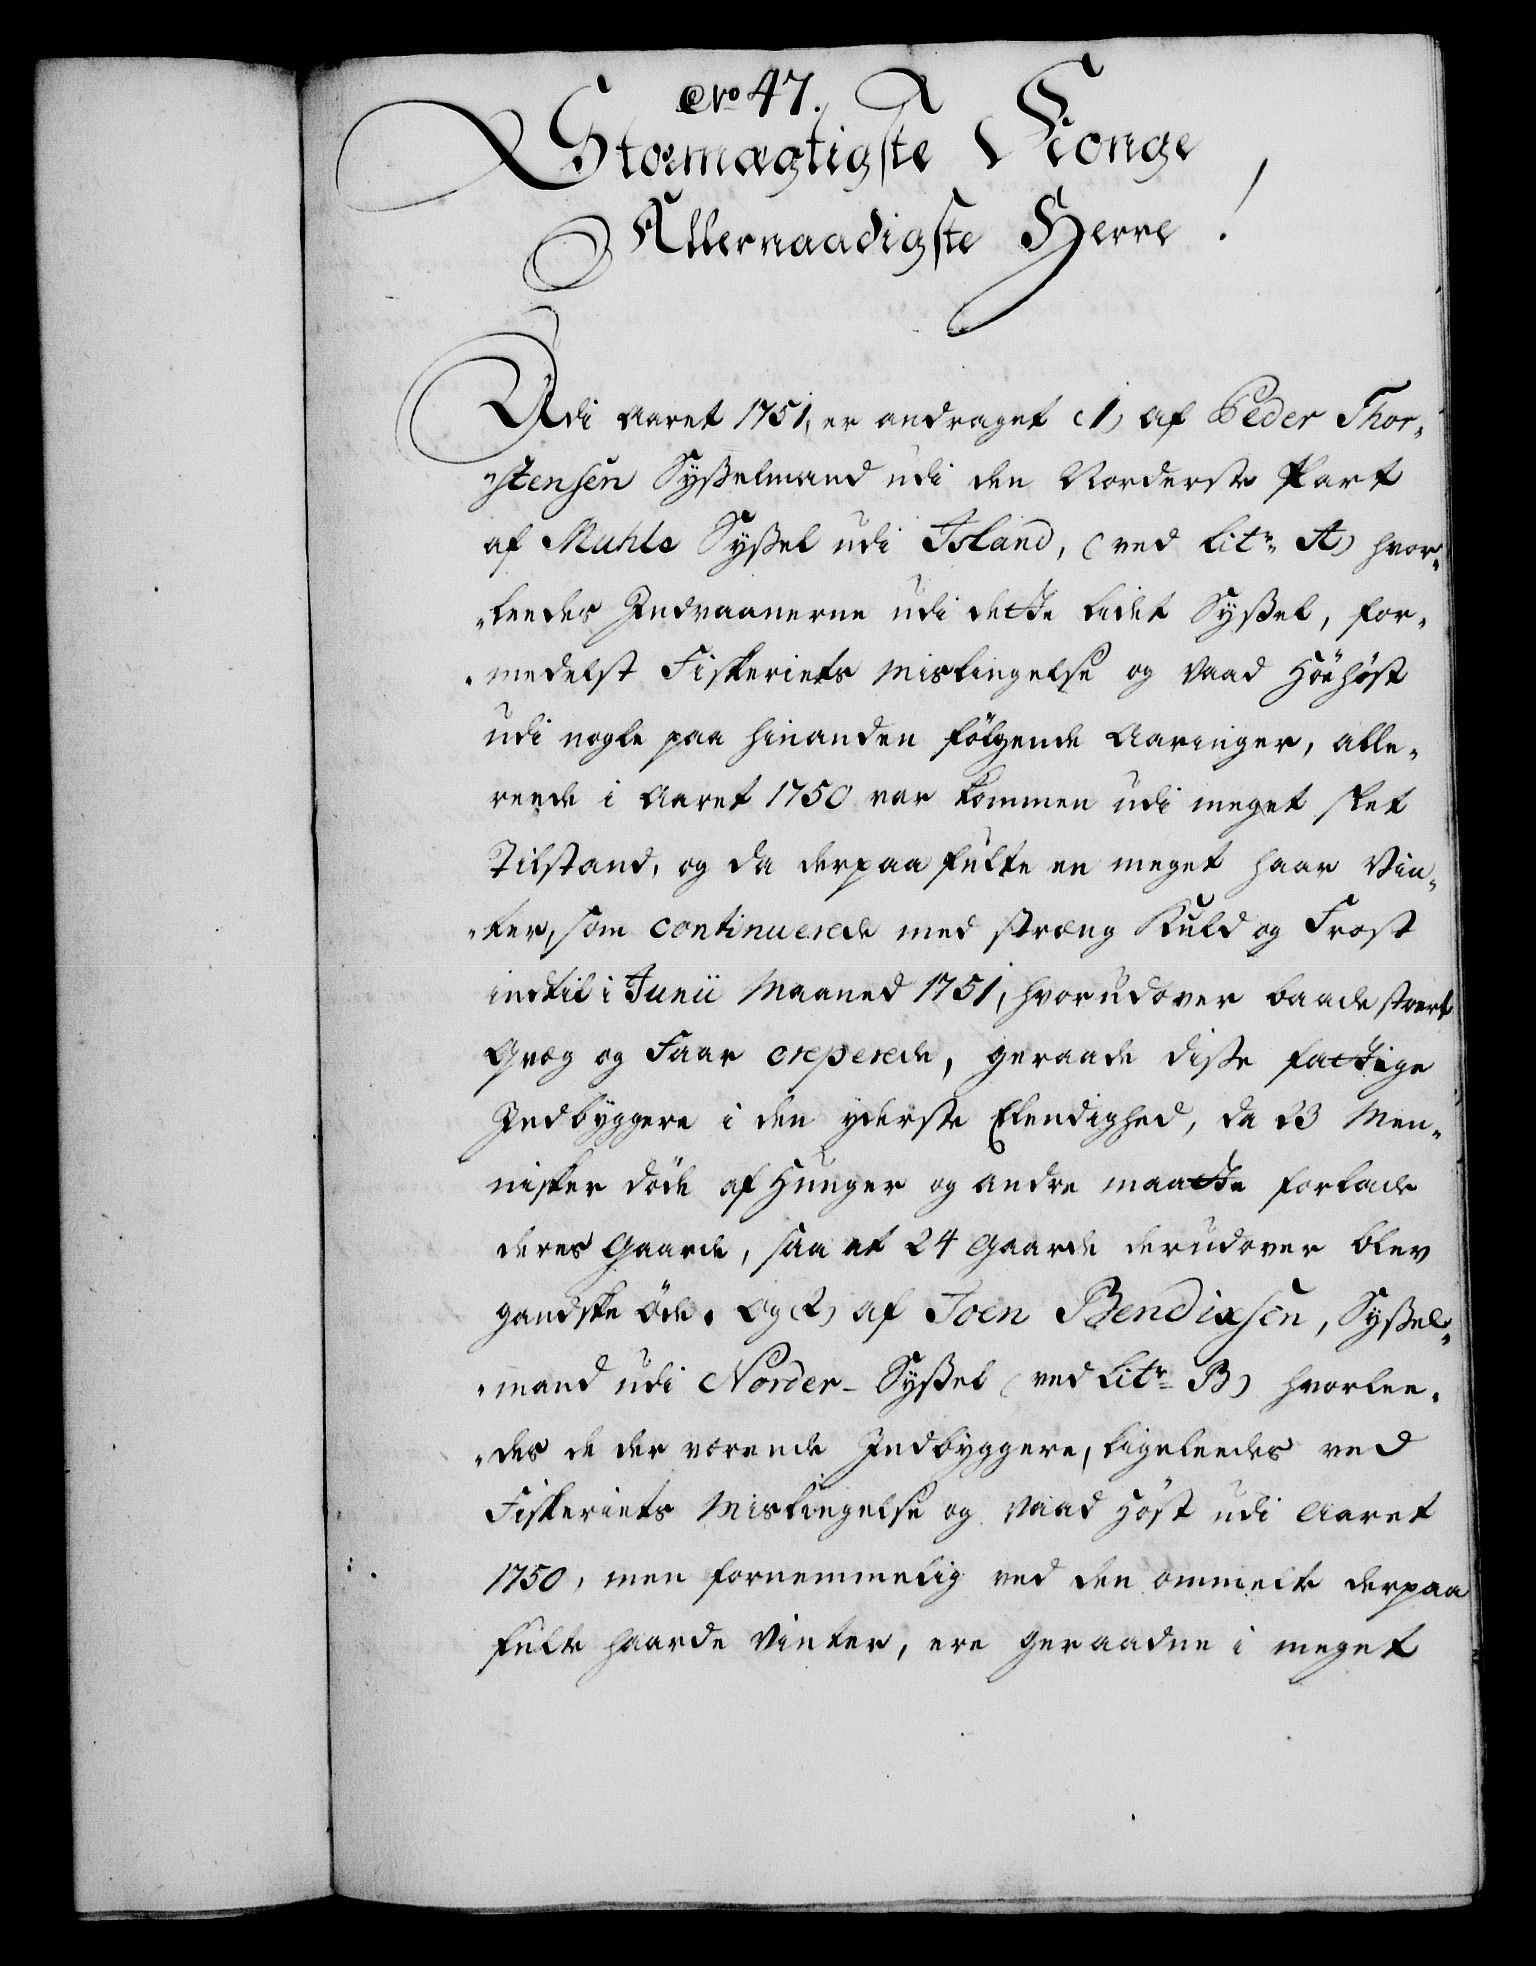 No 47.
Stormægtigste Konge
Allernaadigste Herre!
Udi Aaret 1751, er andraget (1) af Peder Thor-
stensen Sysselmand udi den Norderste Part
af Muhle Syssel udi Island, (ved Litr: A) hvor-
leedes Indvaanerne udi dette lidet Syssel, for-
medelst Fiskeriets Mislingelse og vaad Höehöst
udi nogle paa hinanden fölgende Aaringer, alle-
reede i Aaret 1750 var kommen udi meget slet
Tilstand, og da derpaa fulte en meget haar Vin-
ter, som continuerede med stræng Kuld og Frost
indtil i Junii Maaned 1751, hvorudover baade stoert
Qvæg og Faar creperede, geraade disse fattige
Indbyggere i den yderste Elendighed, da 23 Men-
nisker döde af Hunger og andre maatte forlade
deres Gaarde, saa at 24 Gaarde derudover blev
gandske öde. Og (2) af Joen Bendixsen, Syssel-
mand udi Norder-Syssel (ved Litr: B) hvorlee-
des de der værende Indbyggere, ligeleedes ved
Fiskeriets Mislingelse og vaad Höst udi Aaret
1750, men fornemmelig ved den ommelte derpaa
fulte haarde Vinter, ere geraadne i meget